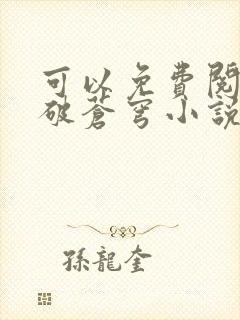 可以免費閱
破蒼穹小說
孫龍奎